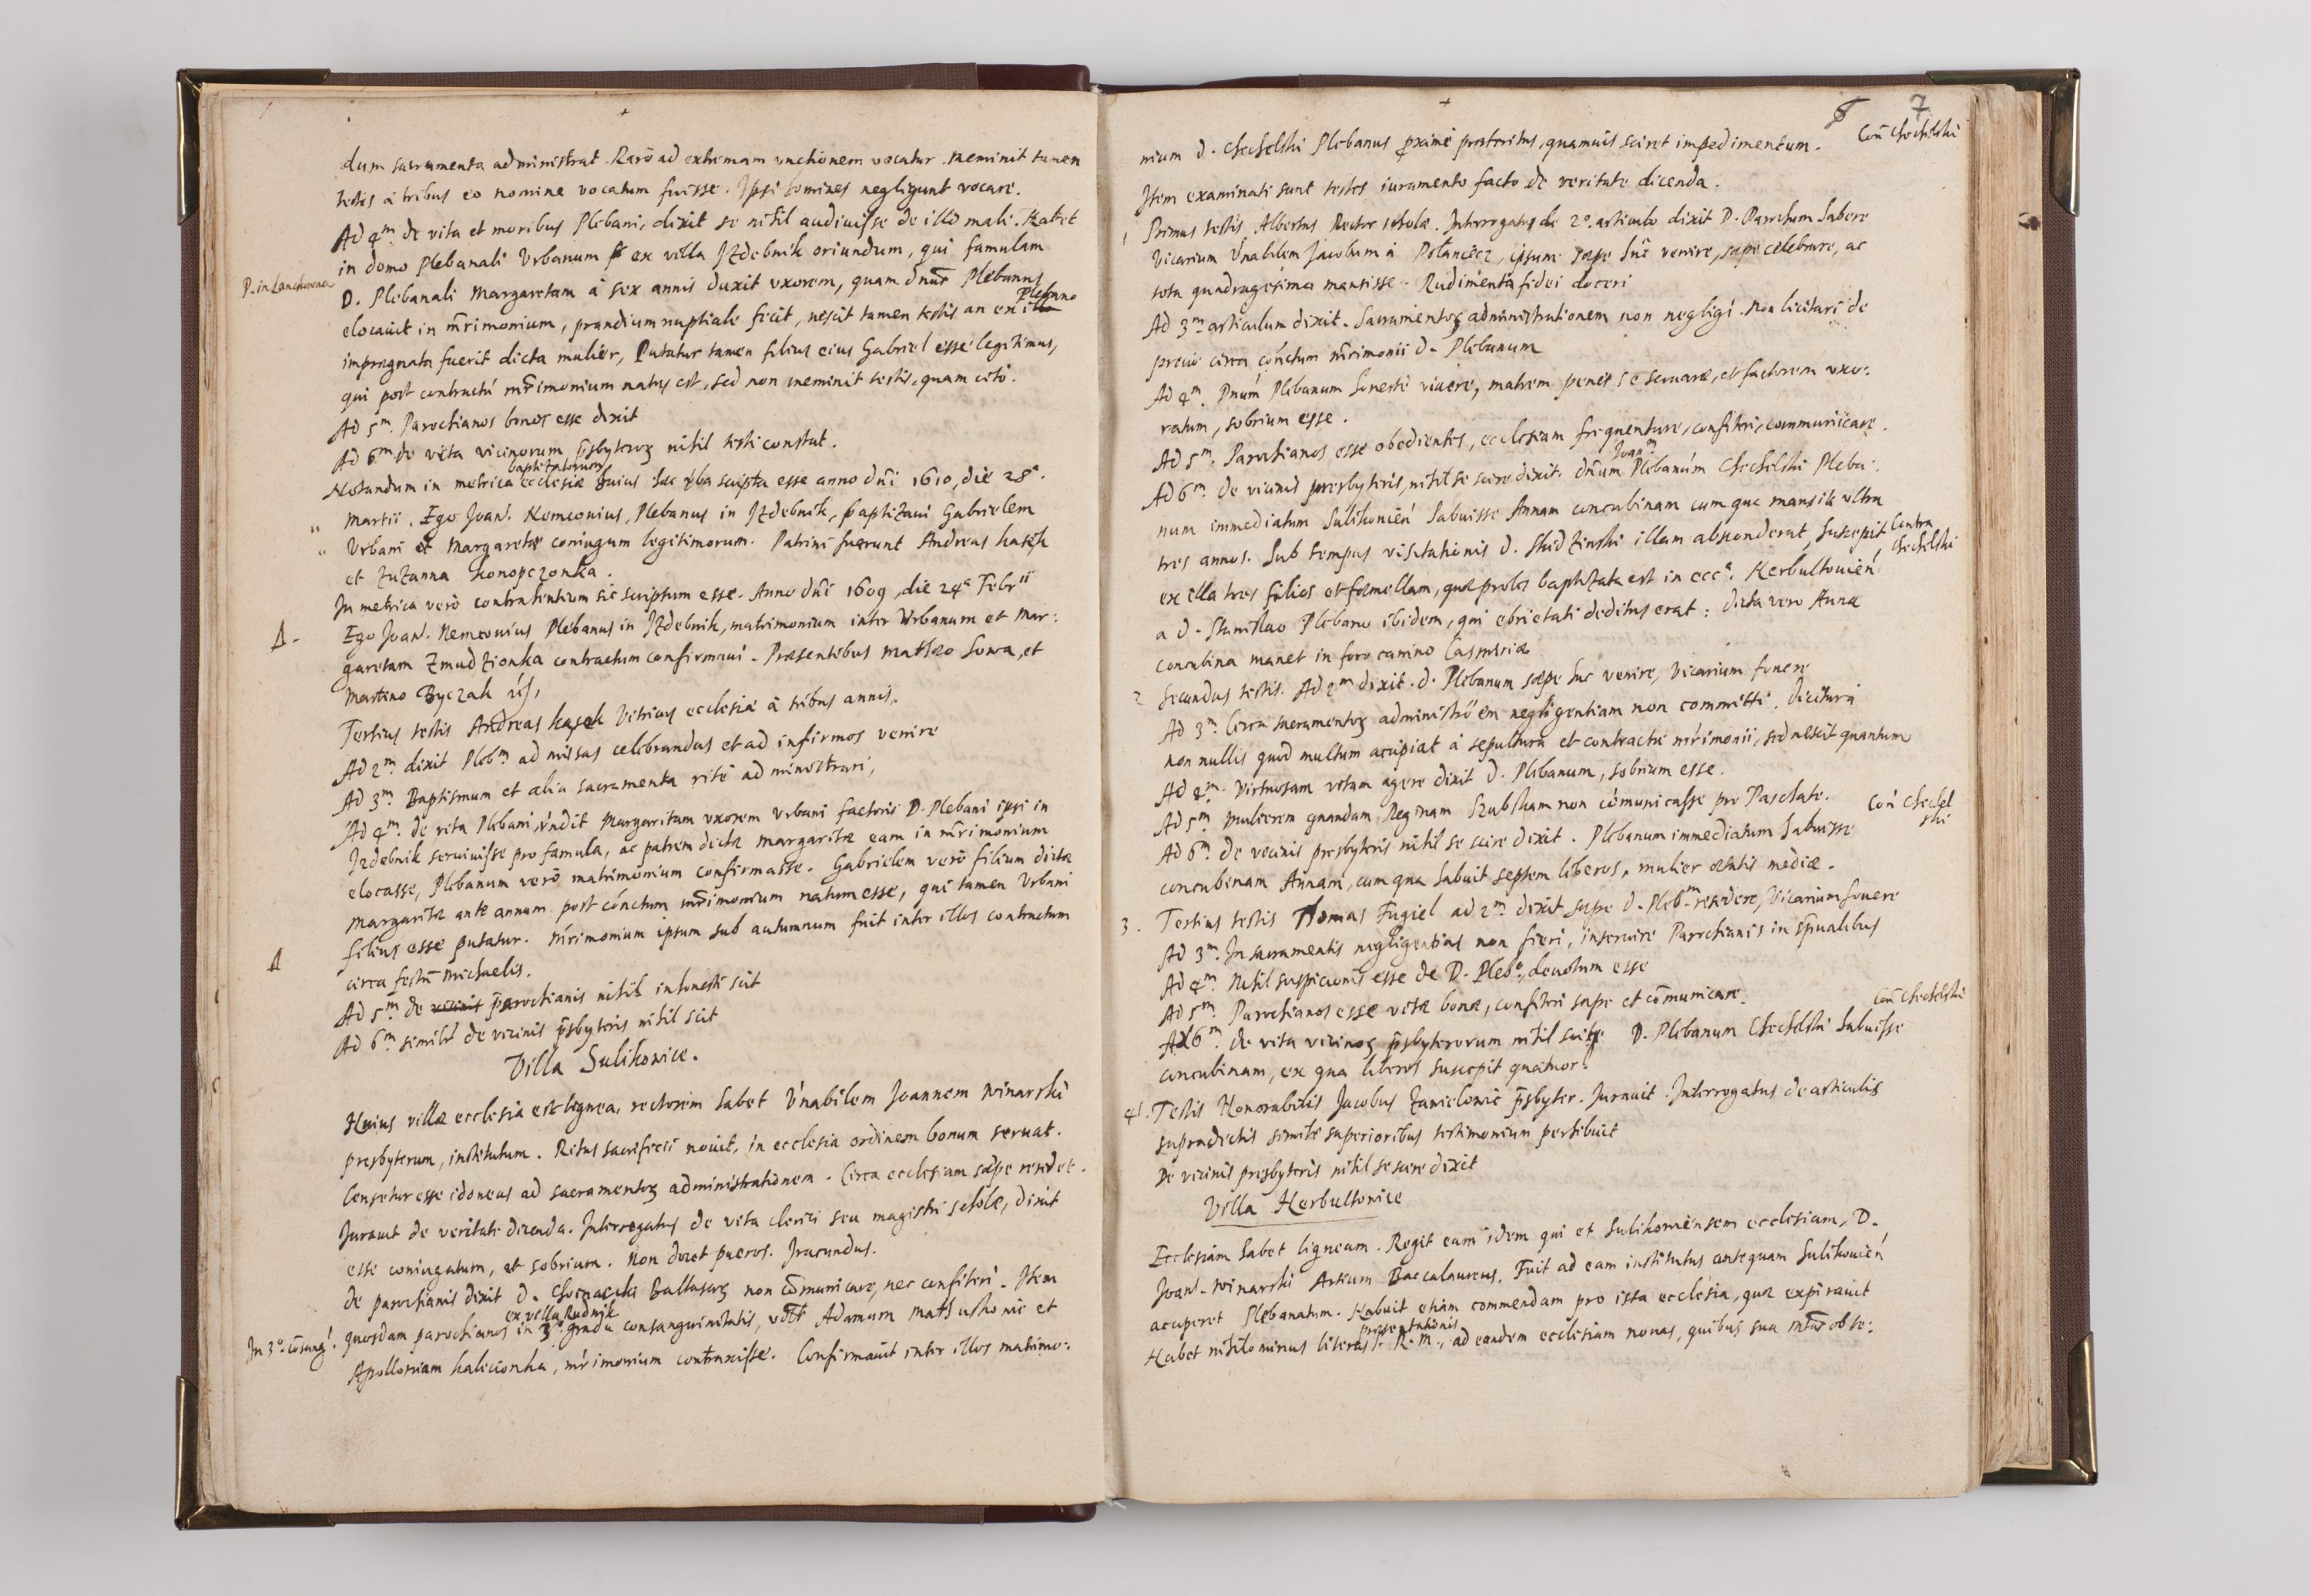 dum sacramenta administrat. Rarò ad extremam vnctionem vocatur. Meminit tamen
testis à tribus eo nomine vocatum fuisse. Ipsi homines negligunt vocare.
Ad 4m. de vita et moribus Plebani, dixit se nihil audiuisse de illo mali. Habet
in domo Plebanali Vrbanum ex villa Izdebnik oriundum, qui famulam
P. in Lanckorona
D. Plebanali Margaretam à sex annis duxit vxorem, quam dnūs Plebanus
elocauit in mr̄imonium, prandium nuptiale fecit, nescit tamen testis an ex Plebano
impregnata fuerit dicta mulier, Putatur tamen filius eius Gabriel esse legitimus,
qui post contractū mr̄imonium natus est, sed non meminit testis, quam cito.
Ad 5m. Parochianos bonos esse dixit
Ad 6m de vita vicinorum p̄sbyteroꝝ nihil testi constat.
Notandum in metrica baptizatorum ecclesiæ huius hæc v̄ba scripta esse anno dn̄i 1610, die 28a.
Martii. Ego Joan. Nemconius, Plebanus in Izdebnik, baptizaui Gabrielem
Vrbani et Margaretæ coniugum legitimorum. Patrini fuerunt Andreas kasek
et Zuzanna konopczonka.
In metrica verò contrahentium sic scriptum esse. Anno dn̄i 1609, die 24a Febrii
Ego Joan. Nemconius Plebanus in Izdebnik, matrimonium inter Vrbanum et Mar:
garetam Zmudzionka contractum confirmaui. Præsentibus Mathæo Sowa, et
Martino Byczak
Tertius testis Andreas kasek Vitricus ecclesiæ à tribus annis.
Ad 2m. dixit Plebm. ad missas celebrandas et ad infirmos venire
Ad 3m. Baptismum et alia sacramenta ritè administrari,
Ad 4m. de vita Plebani, Margaritam vxorem Vrbani factoris D. Plebani ipsi in
Izdebnik seruiuisse pro famula, ac patrem dictæ Margaritæ eam in mr̄imonium
elocasse, Plebanum verò matrimonium confirmasse. Gabrielem verò filium dictæ
Margaritæ ante annum post cōnctum mr̄imonium natum esse, qui tamen Vrbani
filius esse putatur. Mr̄imonium ipsum sub autumnum fuit inter illos contractum
circa festū Michaelis.
Ad 5m de vicinis parochianis nihil inhonesti scit
Ad 6m similr̄ de vicinis p̄sbyteris nihil scit
Villa Sulikowice.
Huius villæ ecclesia est lignea, rectorem habet V̄nabilem Joannem Winarski
presbyterum, institutum. Ritus sacrificii nouit, in ecclesia ordinem bonum seruat.
Censetur esse idoneus ad sacramentoꝝ administrationem. Circa ecclesiam sæpe residet.
Jurauit de veritate dicenda. Interrogatus de vita clerici seu magistri scholæ, dixit
esse coniugatum, et sobrium. Non docet pueros. Iracundus.
de parochianis dixit D. Baltasarꝝ non cōmunicare, nec confiteri. Item
In 3o. cōsang!
quosdam parochianos ex villa Rudnik in 3o. gradu consanguinitatis, Adamum et
Apolloniam, mr̄imonium contraxisse. Confirmauit inter illos matrimo:
7
nium D. Chechelski Plebanus proximè præteritus, quamuis sciret impedimentum.
Con̄ Chechelski
Item examinati sunt testes iuramento facto de veritate dicenda.
1 Primus testis Albertus Rector scholæ. Interrogatus de 2o. articulo dixit D. Parochum habere
Vicarium V̄nabilem Jacobum à Polanciecz, ipsum sæpe huc venire, sæpe celebrare, ac
tota quadragesima mansisse. Rudimenta fidei doceri
Ad 3m articulum dixit. Sacramentoꝝ administrationem non negligi. Non licitari de
precio circa cōnctum mr̄imonii D. Plebanum
Ad 4m. Dnūm Plebanum honestè viuere, matrem penes se seruare, et factorem vxo:
ratum, sobrium esse.
Ad 5m. Parochianos esse obedientes, ecclesiam frequentare, confiteri, communicare.
Ad 6m. de vicinis presbyteris, nihil se scire dixit. Dnūm Joanm Plebanum Chechelski Pleba:
num immediatum Sulikouien̄ habuisse Annam concubinam cum qua mansit vltra
tres annos. Sub tempus visitationis D. Skidzinski illam absconderat, Suscepit
Contra Chechelski
ex illa tres filios et fœmellam, quæ proles baptizata est in ecca. Herbultouien̄
a D. Stanislao Plebano ibidem, qui ebrietati deditus erat: dicta vero Anna
concubina manet in foro canino Casimiriæ
2 Secundus testis. Ad 2m dixit. D. Plebanum sæpe huc venire, Vicarium fouere
Ad 3m. Circa sacramentoꝝ administrō em negligentiam non committi. dicitur à
non nullis quod multum accipiat à sepultura et contractu mr̄imonii, sed nescit quantum
Ad 4m. Virtuosam vitam agere dixit D. Plebanum, sobrium esse.
Ad 5m. Mulierem quandam Reginam Szubskam non cōmunicasse pro Paschate.
Ad 6m. de vicinis presbyteris nihil se scire dixit. Plebanum immediatum habuisse
Con̄ Chechelski
concubinam Annam, cum qua habuit septem liberos, mulier ætatis mediæ.
3. Tertius testis Thomas Fugiel ad 2m. dixit sæpe D. Plebm residere, Vicarium fouere
Ad 3m. In sacramentis negligentias non fieri, inseruire Parochianis in sp̄ualibus
Ad 4m. Nihil suspicionis esse de D. Plebo, deuotum esse
Ad 5m. Parochianos esse vitæ bonæ, confiteri sæpe et cōmunicare.
Ad 6m. de vita vicinoꝝ p̄sbyterorum nihil scit. D. Plebanum Chechelski habuisse
Con̄ Chechelski
concubinam, ex qua liberos suscepit quatuor.
4. Testis Honorabilis Jacobus p̄sbyter. Jurauit. Interrogatus de articulis
supradictis simile superioribus testimonium perhibuit
De vicinis presbyteris nihil se scire dixit
Villa Herbultowice
Ecclesiam habet ligneam. Regit eam idem qui et Sulikowiensem ecclesiam, D.
Joan. Winarski Artium Baccalaureus. Fuit ad eam institutus antequam Sulikouien̄
acciperet Plebanatum. Habuit etiam commendam pro ista ecclesia, quæ expirauit
Habet nihilominus literas præsentationis R. M., ad eandem ecclesiam nouas, quibus sua obse: